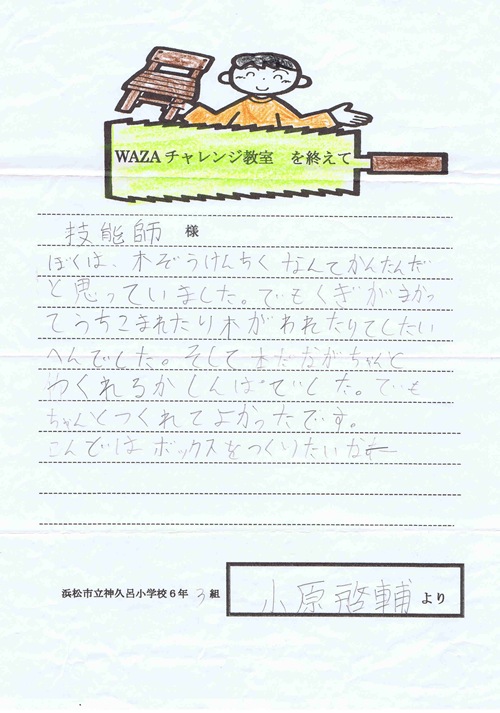 WAZAチャレンジ教室　を終えて
技能師 様
ぼくは、木ぞうけんちくなんてかんたんだ
と思っていました。でもくぎがまがっ
てうちこまれたり木がわれたりてしたい
へんでした。そして本だながちゃんと
つくれるかしんぱいでした。でも
ちゃんとつくれてよかったです。
こんどはボックスをつくりたい
浜松市立神久呂小学校6年 3 組 小原啓輔 より